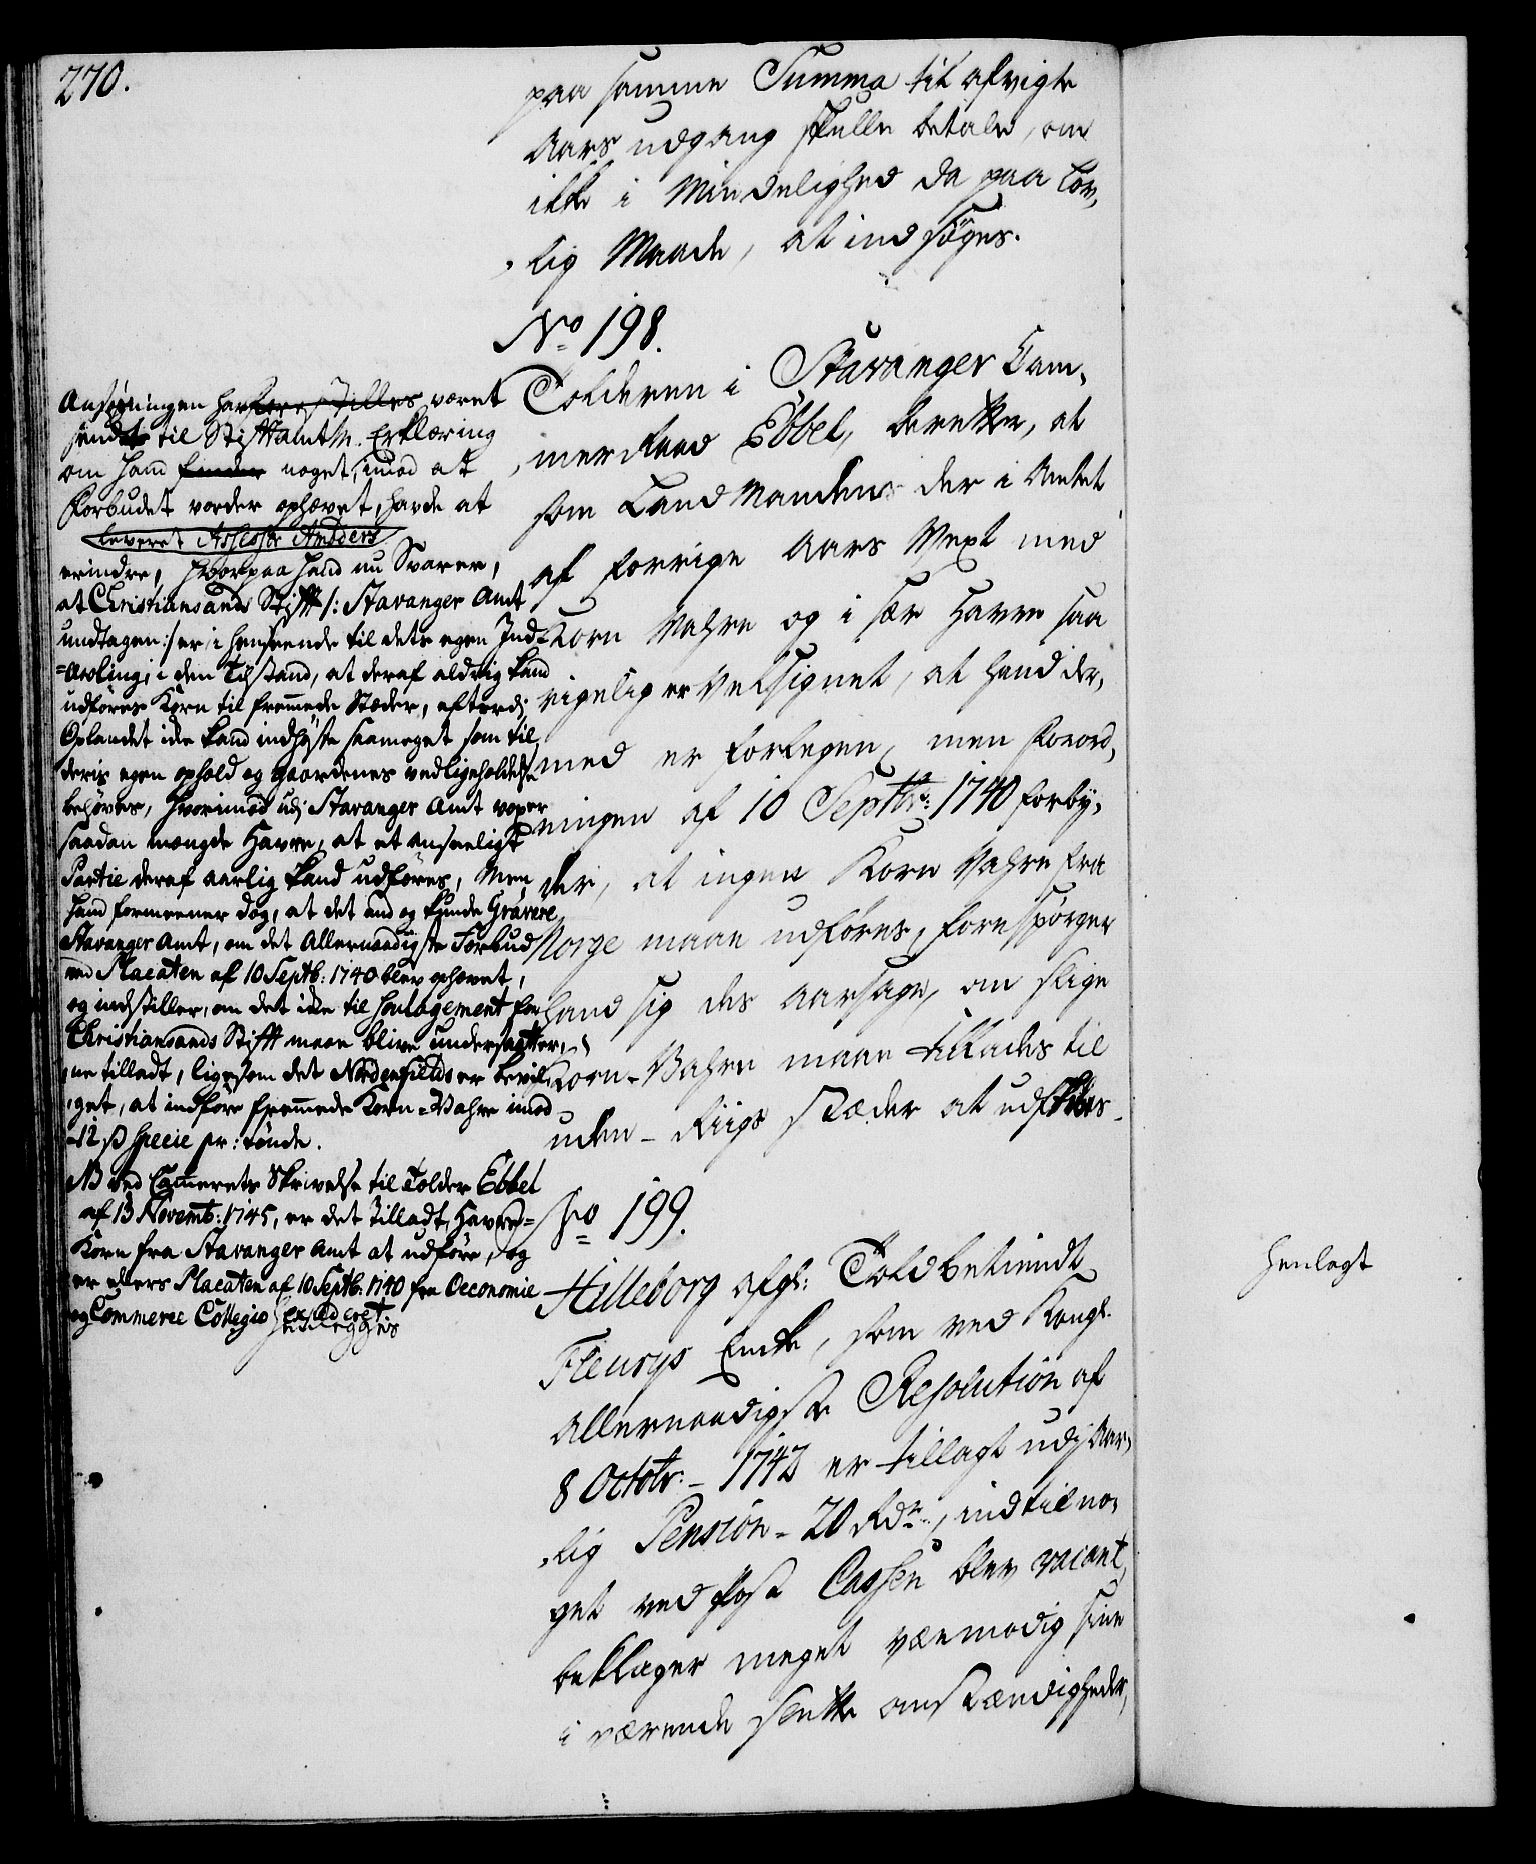 270.
paa samme Summa til afvigte
Aars udgang skulle betale, om
ikke i Mindelighed da paa Lov,
„lig Maade, at indsøges.
No 198.
Tolderen i Stavanger Cam,
„mer Raad Ebbel, beretter, at
som Land Mandens der i Amtet
af forrige Aars Vext med
Korn Vahre og i sær Havre saa
rigelig er Velsignet, at hand der,
med er forlegen, men Forord,
ningen af 10 Septbr: 1740 forby,
der, at ingen Korn Vahre fra
Norge maae udføres, forespørger
hand sig des aarsage, om slige
Korn-Vahre maae tillades til
uden-Riigs stæder at udskibes.
Ansøgningen har forestilles været
sendt til Stiftamtm. Erklæring
om hand finder noget, imod at
Forbudet vorder ophævet, havde at
leveret Assessor Anders
erindre, hvorpaa hand nu Svarer,
at Christiansands Stift /: Stavanger Amt
undtagen :/ er i henseende til dets egen Ind-
=Avling, i den Tilstand, at deraf aldrig kand
udføres Korn til fremmede Stæder, efterdi
Oplandet icke kand indhøste saameget som til
deris egen ophold og gaardenes vedligeholdelse
behøves, hvorimod udj Stavanger Amt voxer
saadan mængde Havre, at et anseeligt
Partie deraf aarlig kand udføres, Men
hand formeener dog, at det end og kunde Gravere
Stavanger Amt, om det Allernaadigste Forbud
ved Placaten af 10 Septb: 1740 blev ophævet,
og indstiller, om det icke til Soulagement for
Christiansands Stift maae blive undersaatter,
„ne tilladt, ligesom det Nordenfields er bevil,
„get, at indføre fremmede Korn-Vahre imod
12 s specie pr: tønde.
NB ved Cammerets Skrivelse til Tolder Ebbel
af 13 Novemb: 1745, er det tilladt, Havre=
Korn fra Stavanger Amt at udføre, og
er ellers Placaten af 10 Septb: 1740 fra Oeconomie
og Commerce Collegio
Henlegges
No 199.
Hilleborg afg: Toldbetiendt
Fleurys Enke, som ved Kongl.
Allernaadigste Resolution af
8 Octobr: - 1742 er tillagt udj Aar,
„lig Pension - 20 Rdr, indtil no,
get ved Post Cassen blev vacant,
beklager meget væemodig sine
i værende slette omstændigheder,
henlagt